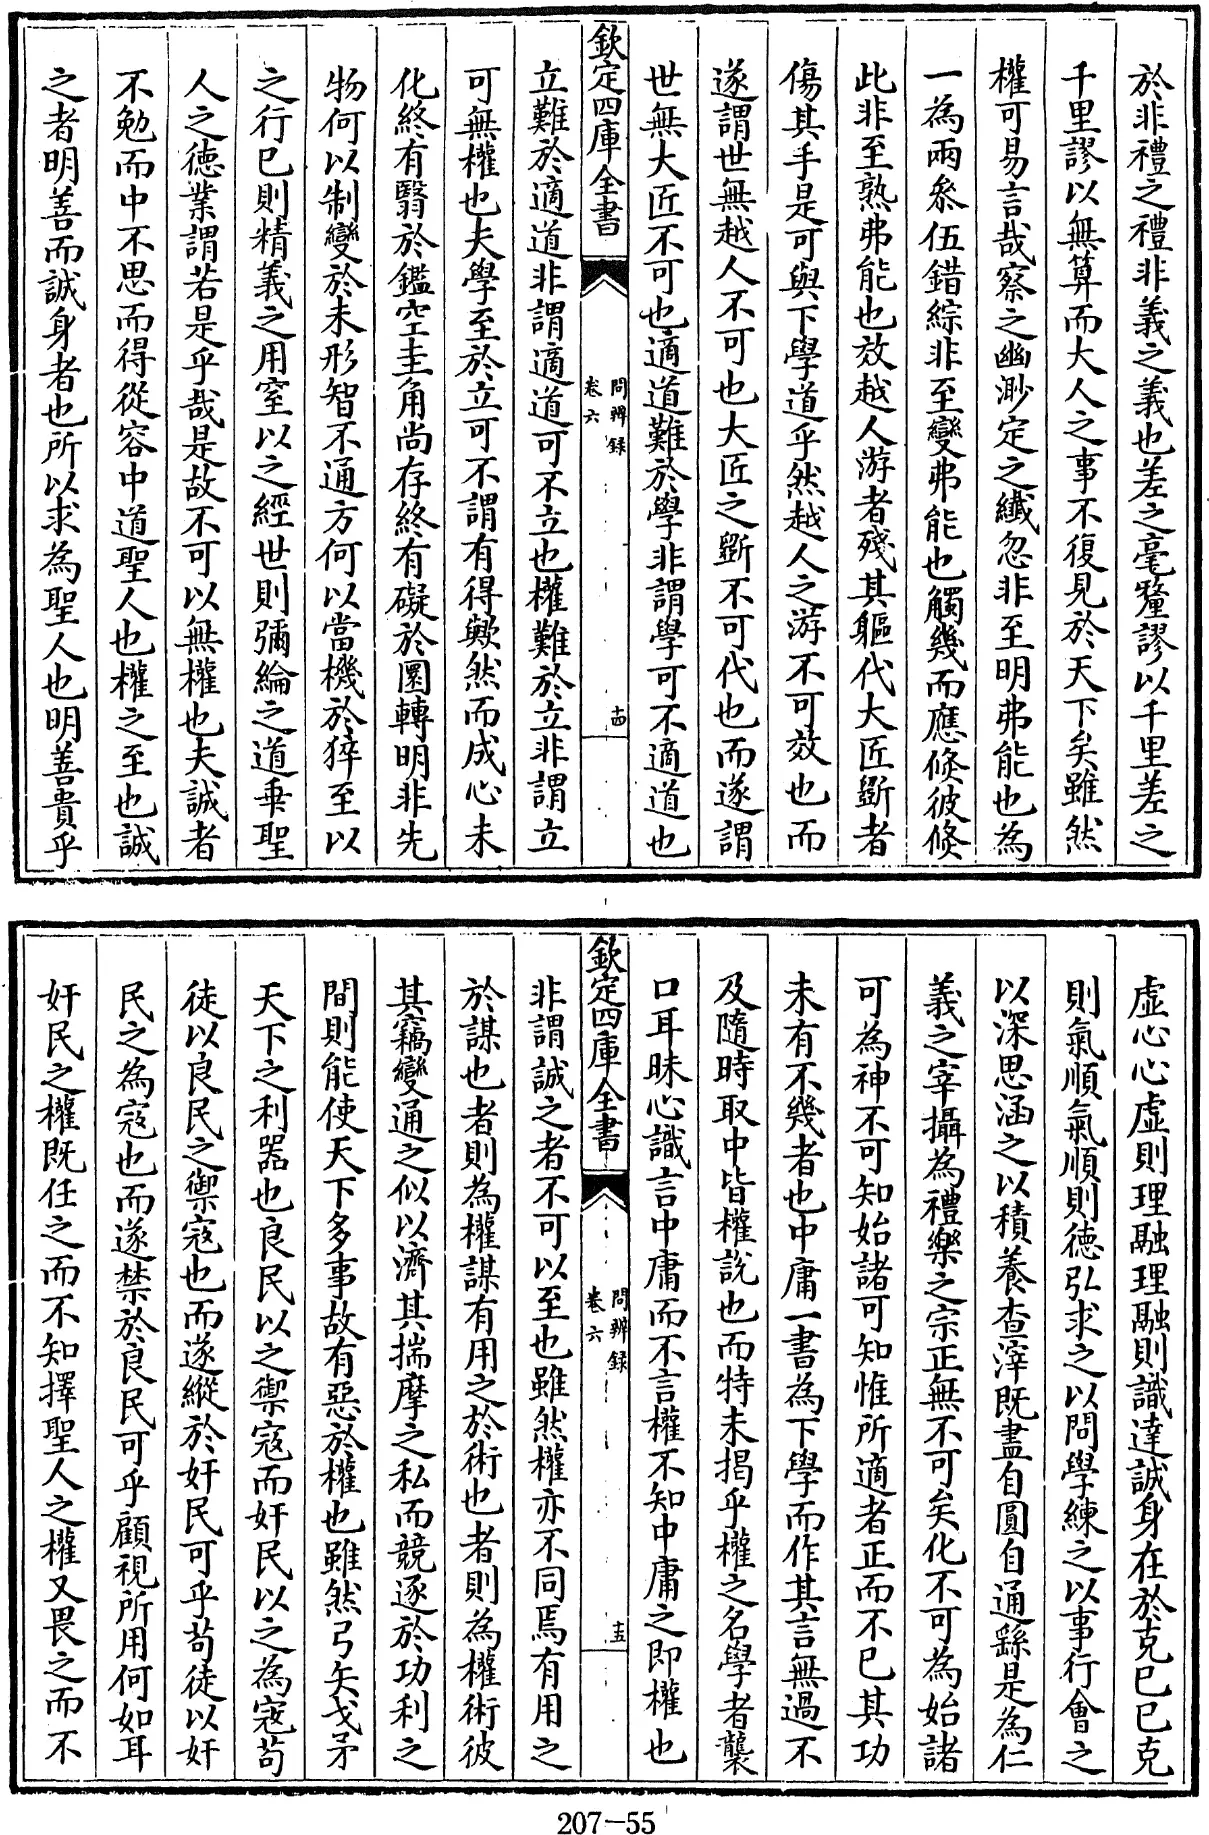 於非禮之禮非義之義也差之毫釐謬以千里差之
千里謬以無算而大人之事不復見於天下矣雖然
權可易言哉察之幽渺定之纖忽非至明弗能也為
一為兩叅伍錯綜非至變弗能也觸幾而應倐彼倐
此非至熟弗能也效越人游者殘其軀代大匠斵者
傷其手是可與下學道乎然越人之游不可效也而
遂謂世無越人不可也大匠之斵不可代也而遂謂
世無大匠不可也適道難於學非謂學可不適道也
欽定四庫全書
問辨録
卷六
十四
立難於適道非謂適道可不立也權難於立非謂立
可無權也夫學至於立可不謂有得歟然而成心未
化終有翳於鑑空圭角尚存終有礙於圜轉明非先
物何以制變於未形智不通方何以當機於猝至以
之行已則精義之用窒以之經世則彌綸之道乖聖
人之徳業謂若是乎哉是故不可以無權也夫誠者
不勉而中不思而得從容中道聖人也權之至也誠
之者明善而誠身者也所以求為聖人也明善貴乎
虚心心虚則理融理融則識達誠身在於克已已克
則氣順氣順則徳弘求之以問學練之以事行會之
以深思涵之以積養查滓既盡自圓自通繇是為仁
義之宰攝為禮樂之宗正無不可矣化不可為始諸
可為神不可知始諸可知惟所適者正而不已其功
未有不幾者也中庸一書為下學而作其言無過不
及隨時取中皆權說也而特未揭乎權之名學者襲
口耳昧心識言中庸而不言權不知中庸之即權也
欽定四庫全書
問辨録
卷六
十五
非謂誠之者不可以至也雖然權亦不同焉有用之
於謀也者則為權謀有用之於術也者則為權術彼
其竊變通之似以濟其揣摩之私而競逐於功利之
間則能使天下多事故有惡於權也雖然弓矢戈矛
天下之利器也良民以之禦寇而奸民以之為寇茍
徒以良民之禦寇也而遂縱於奸民可乎茍徒以奸
民之為寇也而遂禁於良民可乎顧視所用何如耳
奸民之權既任之而不知擇聖人之權又畏之而不
207-55